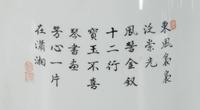 東風裊裊
泛崇光
風髻金釵
十二行
寶玉不喜
琴書畫
芳心一片
在瀟湘